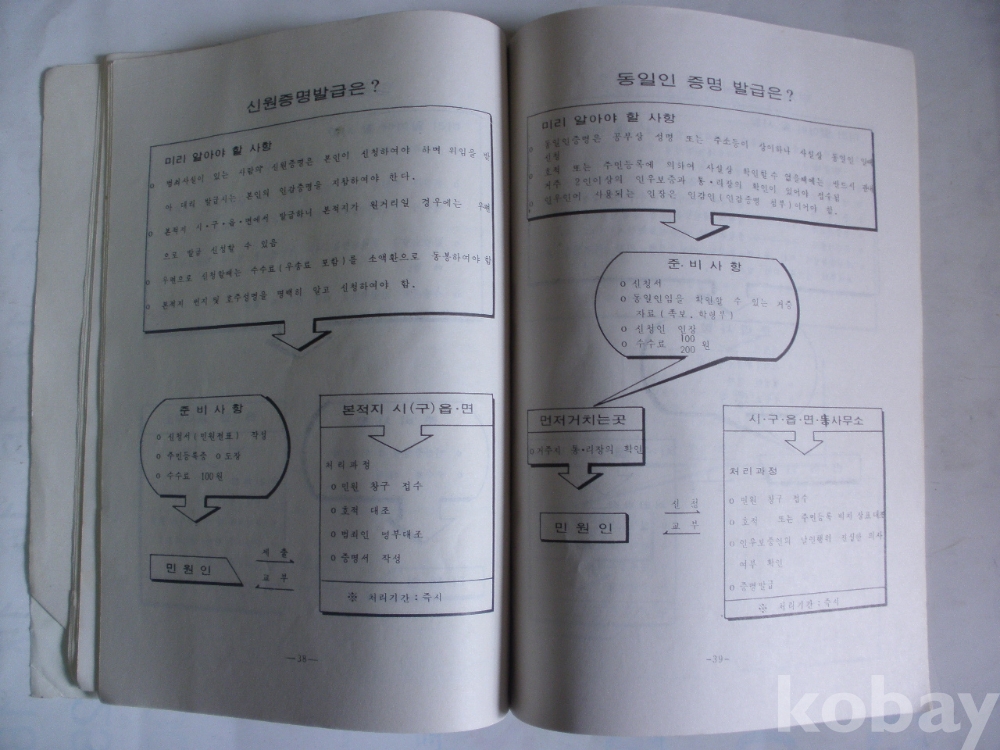 신원증명발급은?
미리 알아야 할 사항
o 범죄사실이 있는 사람의 신원증명은 본인이 신청하여야 하며 위임을 받
아 대리 발급시는 본인의 인감증명을 지참하여야 한다.
o 본적지 시·구·읍·면에서 발급하나 본적지가 원거리일 경우에는 우편
으로 발급 신청할 수 있음
o 우편으로 신청할때는 수수료(우송료 포함)를 소액환으로 동봉하여야 함
o 본적지 번지 및 호주성명을 명백히 알고 신청하여야 함.
준비사항
o 신청서(민원전표) 작성
o 주민등록증 o 도장
o 수수료 100원
민원인
제출
교부
본적지 시(구)읍·면
처리과정
o 민원 창구 접수
o 호적 대조
o 범죄인 명부대조
o 증명서 작성
※ 처리기간:즉시
—38—
동일인 증명 발급은?
미리 알아야 할 사항
o 동일인증명은 공부상 성명 또는 주소등이 상이하나 사실상 동일인 임에
신청
o 호적 또는 주민등록에 의하여 사실상 확인할수 없을때에는 반드시
거주 2인이상의 인우보증과 통·리장의 확인이 있어야 접수됨
o 인우인이 사용되는 인장은 인감인(인감증명 첨부)이어야 됨.
준·비사항
o 신청서
o 동일인임을 확인할 수 있는 거증
자료(족보,학생부)
o 신청인 인장
o 수수료 100 200 원
먼저거치는곳
o 거주지 통·리장의 확인
민원인
신청
교부
시·구·읍·면·동사무소
처리과정
o 민원 창구 접수
o 호적 또는 주민등록 상호대조
o 인우보증인의 날인
여부 확인
o 증명발급
※ 처리기간:즉시
—39—
kobay